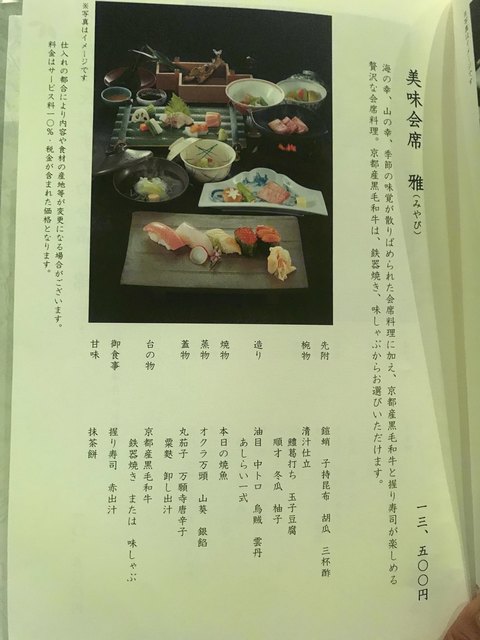 美味会席 雅(みやび)
一三、五〇〇円
海の幸、山の幸、季節の味覚が散りばめられた会席料理に加え、京都産黒毛和牛と握り寿司が楽しめる
贅沢な会席料理。京都産黒毛和牛は、鉄器焼き、味しゃぶからお選びいただけます。
※写真はイメージです
仕入れの都合により内容や食材の産地等が変更になる場合がございます。
料金はサービス料一〇%、税金が含まれた価格となります。
先附 鎧蛸 子持昆布 胡瓜 三杯酢
椀物 清汁仕立
鱧葛打ち 玉子豆腐
順才 冬瓜 柚子
造り 油目 中トロ 烏賊 雲丹
あしらい一式
焼物 本日の焼魚
蒸物 オクラ万頭 山葵 銀餡
蓋物 丸茄子 万願寺唐辛子
粟麩 卸し出汁
台の物 京都産黒毛和牛
鉄器焼き または 味しゃぶ
御食事 握り寿司 赤出汁
甘味 抹茶餅